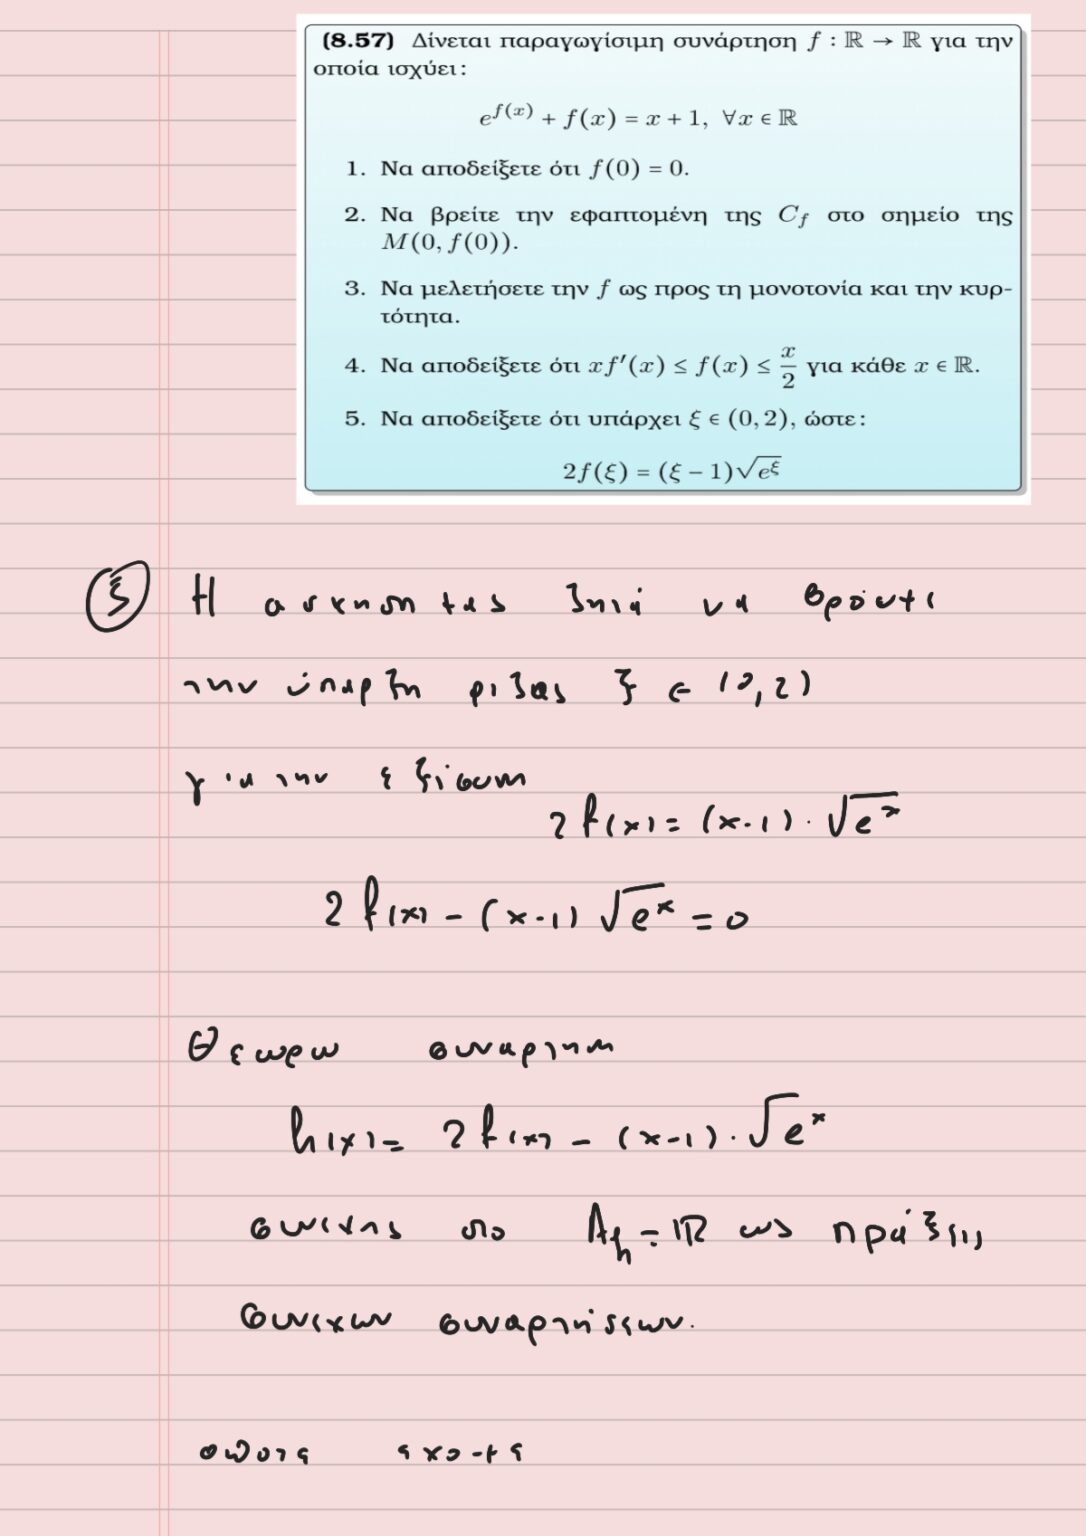 (8.57) Δίνεται παραγωγίσιμη συνάρτηση f : ℝ → ℝ για την
οποία ισχύει:
e^{f(x)} + f(x) = x + 1, ∀x ∈ ℝ
1. Να αποδείξετε ότι f(0) = 0.
2. Να βρείτε την εφαπτομένη της C_f στο σημείο της
M(0, f(0)).
3. Να μελετήσετε την f ως προς τη μονοτονία και την κυρ-
τότητα.
4. Να αποδείξετε ότι xf′(x) ≤ f(x) ≤ x/2 για κάθε x ∈ ℝ.
5. Να αποδείξετε ότι υπάρχει ξ ∈ (0, 2), ώστε:
2f(ξ) = (ξ − 1)√e^ξ
Η ασκηση ζητά να βρούμε
την ύπαρξη ριζας ξ ∈ (0,2)
για την εξίσωση
2f(x) = (x-1)·√e^x
2f(x) - (x-1)√e^x = 0
Θεωρω συναρτηση
h(x) = 2f(x) - (x-1)·√e^x
συνεχης στο A_h = ℝ ως πράξεις
συνεχων συναρτήσεων.